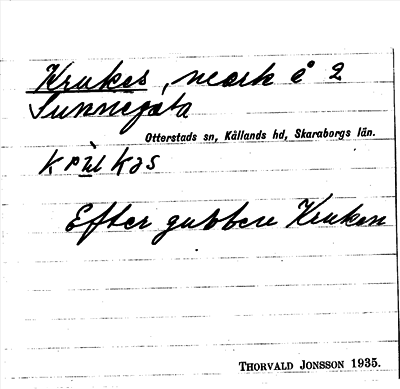 Krukes, mark å 2
Sunnegåta
Otterstads sn, Kållands hd, Skaraborgs län.
Efter gubben Kruken
THORVALD JONSSON 1935.